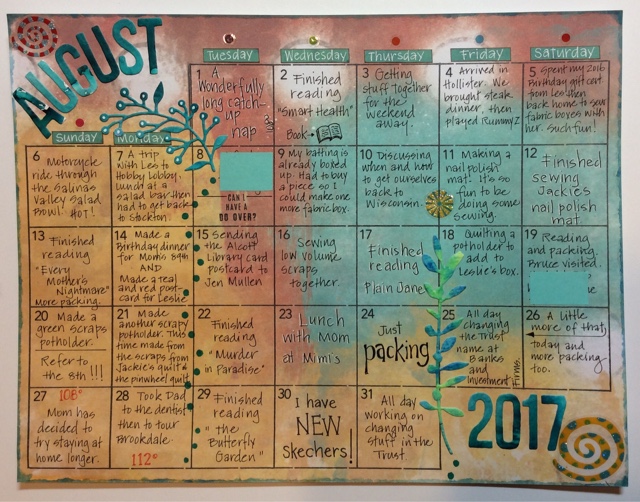 AUGUST
Tuesday
Wednesday
Thursday
Friday
Saturday
Sunday
Monday
1 A
Wonderfully
long catch-
up
nap
2 Finished
reading
"Smart Health"
Book
3 Getting
stuff together
for the
weekend
away.
4 Arrived in
Hollister. We
brought steak
dinner, then
played Rummy Z
5 Spent my 2016
Birthday gift cert
from Lee, then
back home to sew
fabric boxes with
her. Such fun!
6 Motorcycle
ride through
the Salinas
Valley Salad
Bowl. HOT!
7 A trip
with Les to
Hobby Lobby,
lunch at a
salad bar then
had to get back
to Stockton
8
CAN I
HAVE A
DO OVER?
9 My batting is
already boxed
up. Had to buy
a piece so I
could make one
more fabric box.
10 Discussing
when and how
to get ourselves
back to
Wisconsin.
11 Making a
nail polish
mat. It's so
fun to be
doing some
sewing.
12
Finished
sewing
Jackie's
nail polish
mat.
13
Finished
reading
"Every
Mother's
Nightmare"
More packing.
14 Made a
Birthday dinner
for Mom's 89th
AND
Made a teal
and red post-
card for Leslie
15 Sending
the Alcott
Library card
postcard to
Jen Mullen
16
Sewing
low volume
scraps
together.
17
Finished
reading
Plain Jane
18
Quilting a
potholder to
add to
Leslie's box.
19 Reading
and packing.
Bruce visited.
20 Made a
green scraps
potholder.
Refer to
the 8th!!!
21 Made
another scrappy
potholder. This
time made from
the scraps from
Jackie's quilt &
the pinwheel quilt
22
Finished
reading
"Murder
in Paradise"
23
Lunch
with Mom
at Mimi's
24
Just
packing
25 All day
changing
the Trust
name at
Banks
and
Investment
Firms.
26 A little
more of that
today and
more packing
too.
27 108°
Mom has
decided to
try staying at
home longer.
28 Took Dad
to the dentist
then to tour
Brookdale.
112°
29
Finished
reading
"the
Butterfly
Garden"
30
I have
NEW
Skechers!
31
All day
working on
changing
stuff in the
Trust
2017